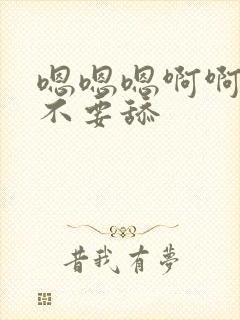 嗯嗯嗯啊啊
不要舔
昔我有夢